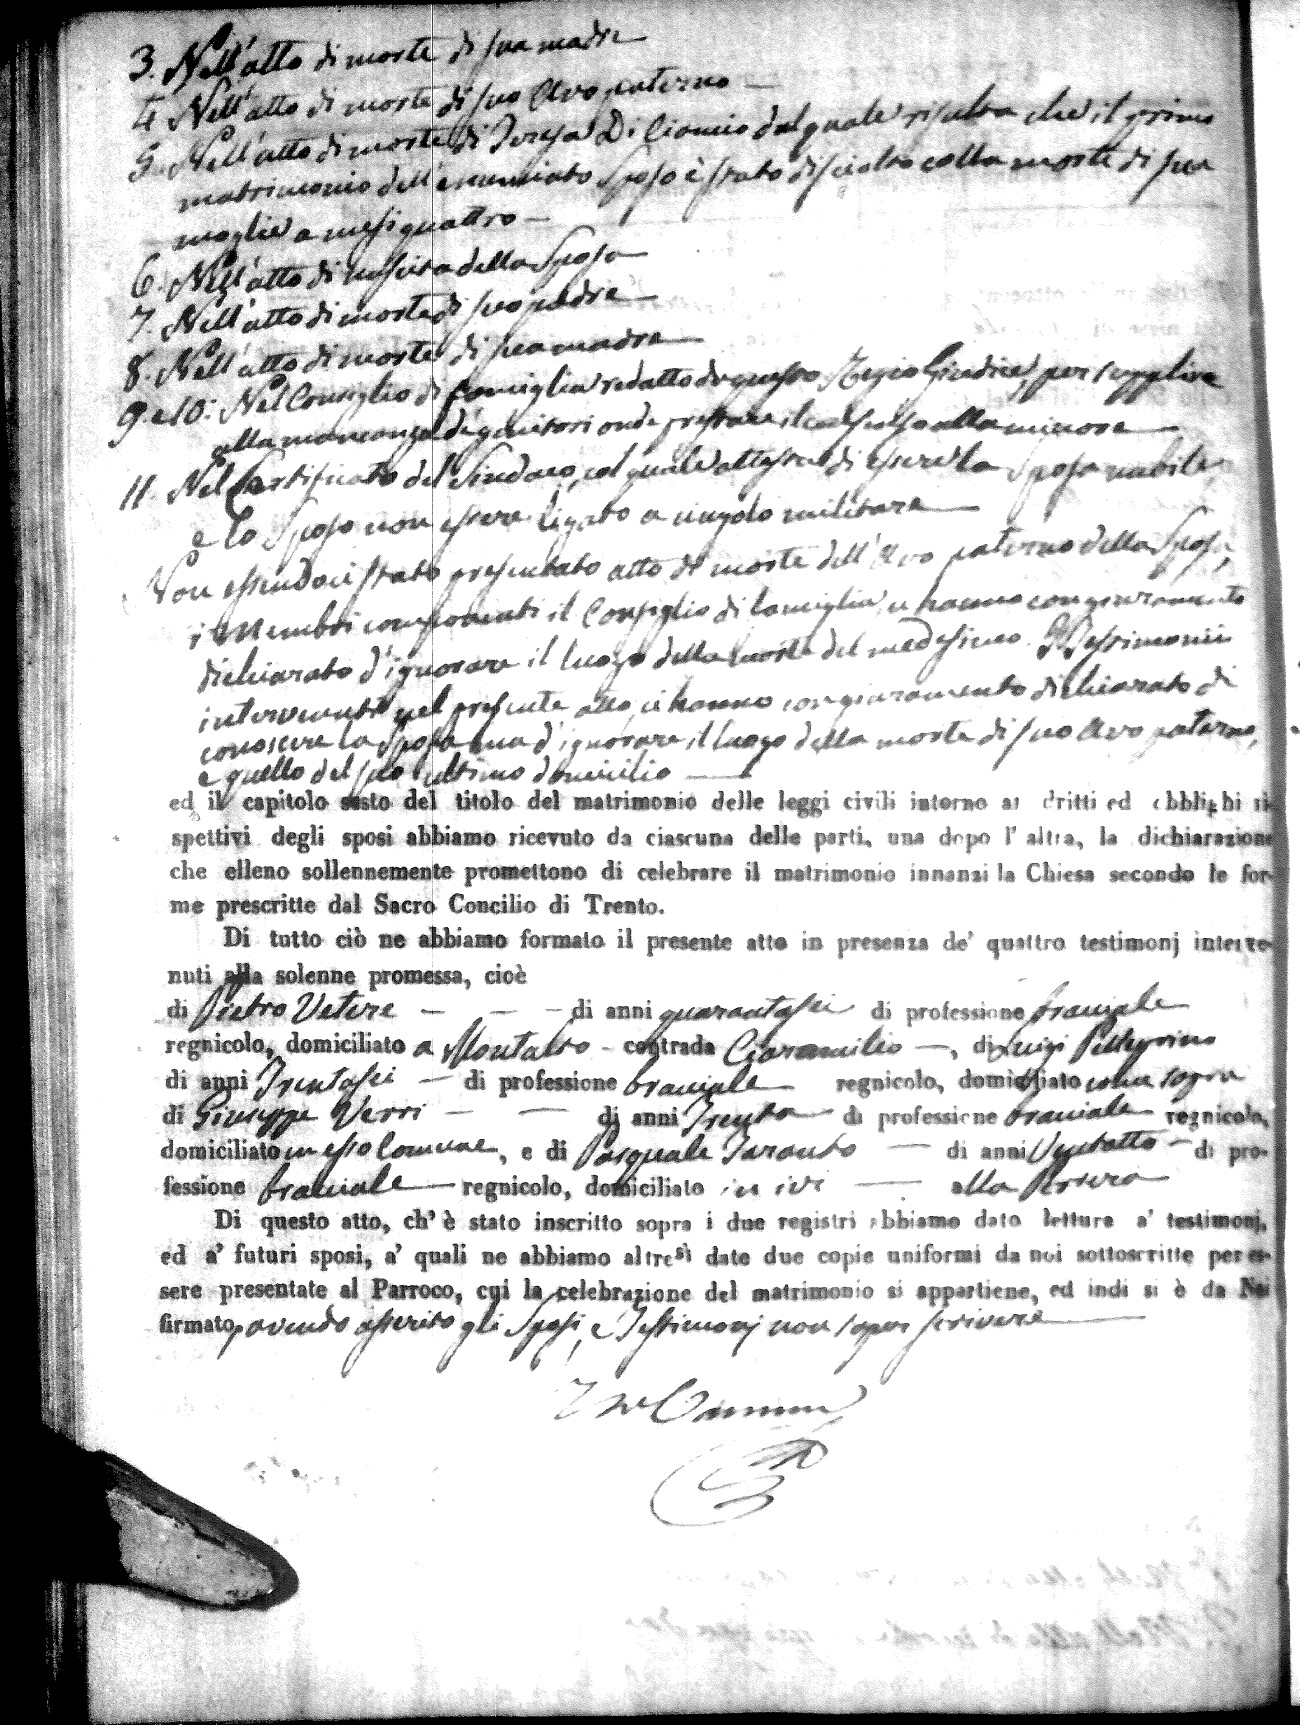 3. Nell'atto di morte di sua madre
4 Nell'atto di morte di suo Avo paterno
5. Nell'atto di morte di Teresa Di Cioncio dal quale risulta che il primo
matrimonio dell'enunciato Sposo è stato disciolto colla morte di sua
moglie a mesi quattro
6. Nell'atto di nascita della Sposa
7. Nell'atto di morte di suo padre
8. Nell'atto di morte di sua madre
9. e 10: Nel Consiglio di famiglia redatto da questo Regio Giudice, per supplire
alla mancanza de' genitori onde prestare il consenso alla minore
11. Nel Certificato del Sindaco, col quale attesta di essere la Sposa nubile,
e lo Sposo non essere ligato a vingolo militare
Non essendoci stato presentato atto di morte dell'Avo paterno della Sposa,
i Membri componenti il Consiglio di famiglia, ci hanno con giuramento
dichiarato d'ignorare il luogo della morte del medesimo. I Testimonii
intervenuti nel presente atto, ci hanno con giuramento dichiarato di
conoscere la Sposa, ma d'ignorare il luogo della morte di suo Avo paterno,
e quello del suo ultimo domicilio
ed il capitolo sesto del titolo del matrimonio delle leggi civili intorno ai dritti ed obblighi ri-
spettivi degli sposi abbiamo ricevuto da ciascuna delle parti, una dopo l' altra, la dichiarazione
che elleno sollennemente promettono di celebrare il matrimonio innanzi la Chiesa secondo le for-
me prescritte dal Sacro Concilio di Trento.
Di tutto ciò ne abbiamo formato il presente atto in presenza de' quattro testimonj interve-
nuti alla solenne promessa, cioè
di Pietro Vetere di anni quarantasei di professione bracciale
regnicolo, domiciliato a Montalto contrada Caramilio, di Luigi Pellegrino
di anni Trentasei di professione bracciale regnicolo, domiciliato come sopra
di Giuseppe Verri di anni Trenta di professione bracciale regnicolo,
domiciliato in esso Comune, e di Pasquale Taranto di anni Ventotto di pro-
fessione bracciale regnicolo, domiciliato in ivi alla
Di questo atto, ch' è stato inscritto sopra i due registri abbiamo dato lettura a' testimonj,
ed a' futuri sposi, a' quali ne abbiamo altresì date due copie uniformi da noi sottoscritte per es-
sere presentate al Parroco, cui la celebrazione del matrimonio si appartiene, ed indi si è da Noi
firmato, avendo asserito gli Sposi, e Testimonj non saper scrivere